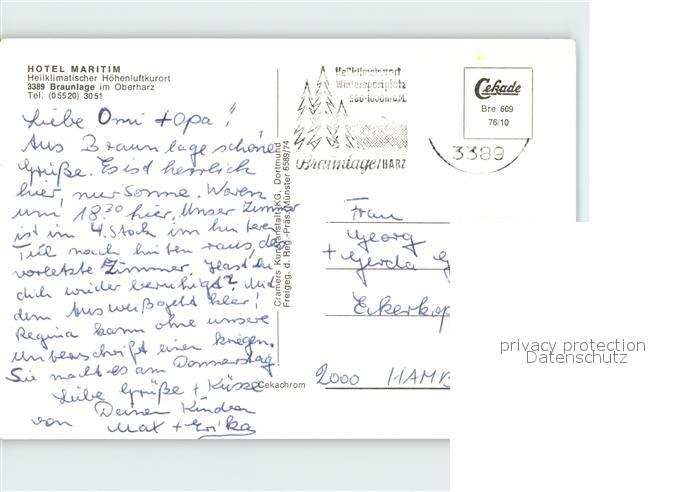 HOTEL MARITIM
Heilklimatischer Höhenluftkurort
3389 Braunlage im Oberharz
Tel. (05520) 3051
Liebe Omi + Opa!
Aus Braunlage schöne
Grüße. Es ist herrlich
hier, nur Sonne. Waren
um 18 30 hier. Unser Zimmer
ist im 4. Stock im hinteren
Teil nach hinten raus, das
vorletzte Zimmer. Hast Du
dich wieder beruhigt? Mit
dem Ausweiß geht klar!
Regina kann ohne unsere
Unterschrift einen kriegen.
Sie macht es am Donnerstag
Liebe Grüße + Küsse
von Deinen Kindern
Max + Erika
Cramers Kunstanstalt KG, Dortmund
Freigeg. d. Reg.-Präs. Münster 6589/74
Cekachrom
Heilklimakurort
Wintersportplatz
560-1000m ü.M.
Braunlage/HARZ
3389
Cekade
Bre 609
76/10
Frau
Georg
+ Gerda G
Eckerkop
2000 HAMB
privacy protection
Datenschutz